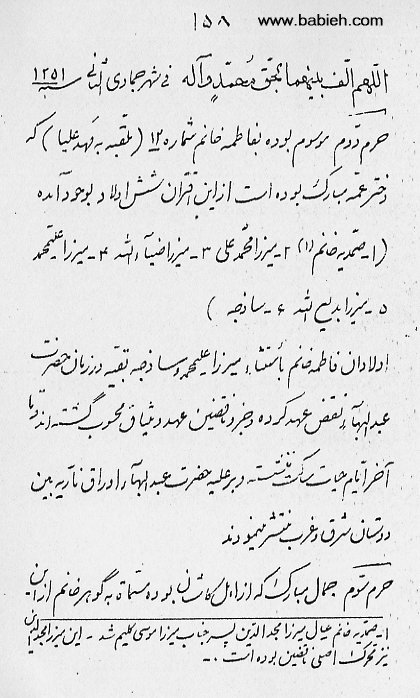 www.babieh.com
۱۵۸
اللهم الّف بینهما بحق محمّد وآله فی شهر جمادی الثانی سنه ۱۲۵۱
حرم دوّم موسوم بوده بفاطمه خانم شماره ۱۲ (ملقّبه به مهد علیا) که
دختر عمّه مبارک بوده است از این اقتران شش اولاد بوجود آمده
(۱- صمّدیه خانم (۱) ۲- میرزا محمّد علی ۳- میرزا ضیآء الله ۴- میرزا علیمحمد
۵- میرزا بدیع الله ۶- ساذجه )
اولادان فاطمه خانم بأستثناء میرزا علیمحمد و ساذجه بقیّه در زمان حضرت
عبدالبهآء نقض عهد کرده و جزو ناقضین عهد و میثاق محسوب گشته اند و تا
آخر ایّام حیات و بر علیه حضرت عبدالبهآء اوراق ناریه بین
دوستان شرق و غرب منتشر مینمودند
حرم سوّم جمال مبارک که از اهل کاشان بوده مسمّاة به گوهر خانم از این
۱- صمدیه خانم عیال میرزا مجدالدین پسر جناب میرزا موسی کلیم شد - این میرزا مجدالدین
نیز محرک اصلی ناقضین بوده است .-